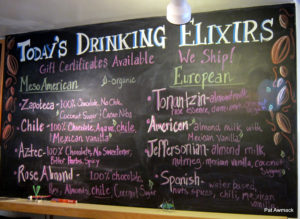 TODAY'S DRINKING ELIXIRS
Gift Certificates Available We Ship!
MesoAmerican
- organic
European
• Zapoteca - 100% Chocolate, No Chile,
Coconut Sugar
• Chile - 100% Chocolate, Agave, chile,
Mexican vanilla
• Aztec - 100% Chocolate, No Sweetener
Bitter Herbs, Spicy
• Rose Almond - 100% chocolate
Rose, Almonds, Chile, Coconut Sugar
• Tonantzin - almond milk
• American - almond milk, with
Mexican Vanilla
• Jeffersonian - almond milk,
nutmeg, mexican vanilla, coconut
Sugar
• Spanish - water based,
nuts, spices, chili,
Pat Awmack